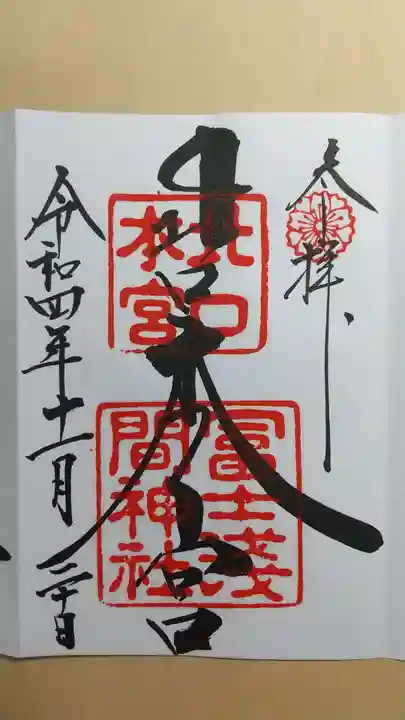 奉拝
北口本宮
北口
本宮
冨士浅
間神社
令和四年十一月三十日